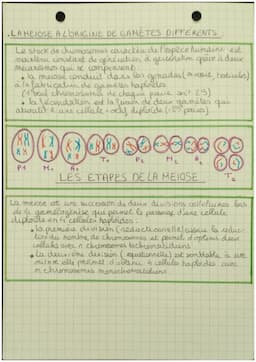 LA MEIOSE A L'ORIGINE DE GAMÈTES DIFFERENTS
Le stock de chromosomes caractérise l'espèce humaine est
maintenu constant de génération à génération grâce à deux
mécanismes qui se compensent :
• la meiose conduit dans les gonades (ovaires, testicules)
à la fabrication de gamètes haploïdes
(1 seul chromosome de chaque paire soit 23)
• la fécondation est la fusion de deux gamètes qui
aboutit à une cellule-oeuf diploïde (23 paires)
P1 M1 A1 T1 P2 M2 A2
T2
LES ETAPES DE LA MEIOSE
La meiose est une succession de deux divisions cellulaires lors
de la gamétogénèse qui permet le passage d'une cellule
diploïde en 4 cellules haploïdes :
• la première division (réductionnelle) assure la réduc-
tion du nombre de chromosomes et permet d'obtenir deux
cellules avec n chromosomes bichromatidiens
• La deuxième division (équationnelle) est semblable à une
mitose elle permet d'obtenir 4 cellules haploïdes avec
n chromosomes monochromatidiens